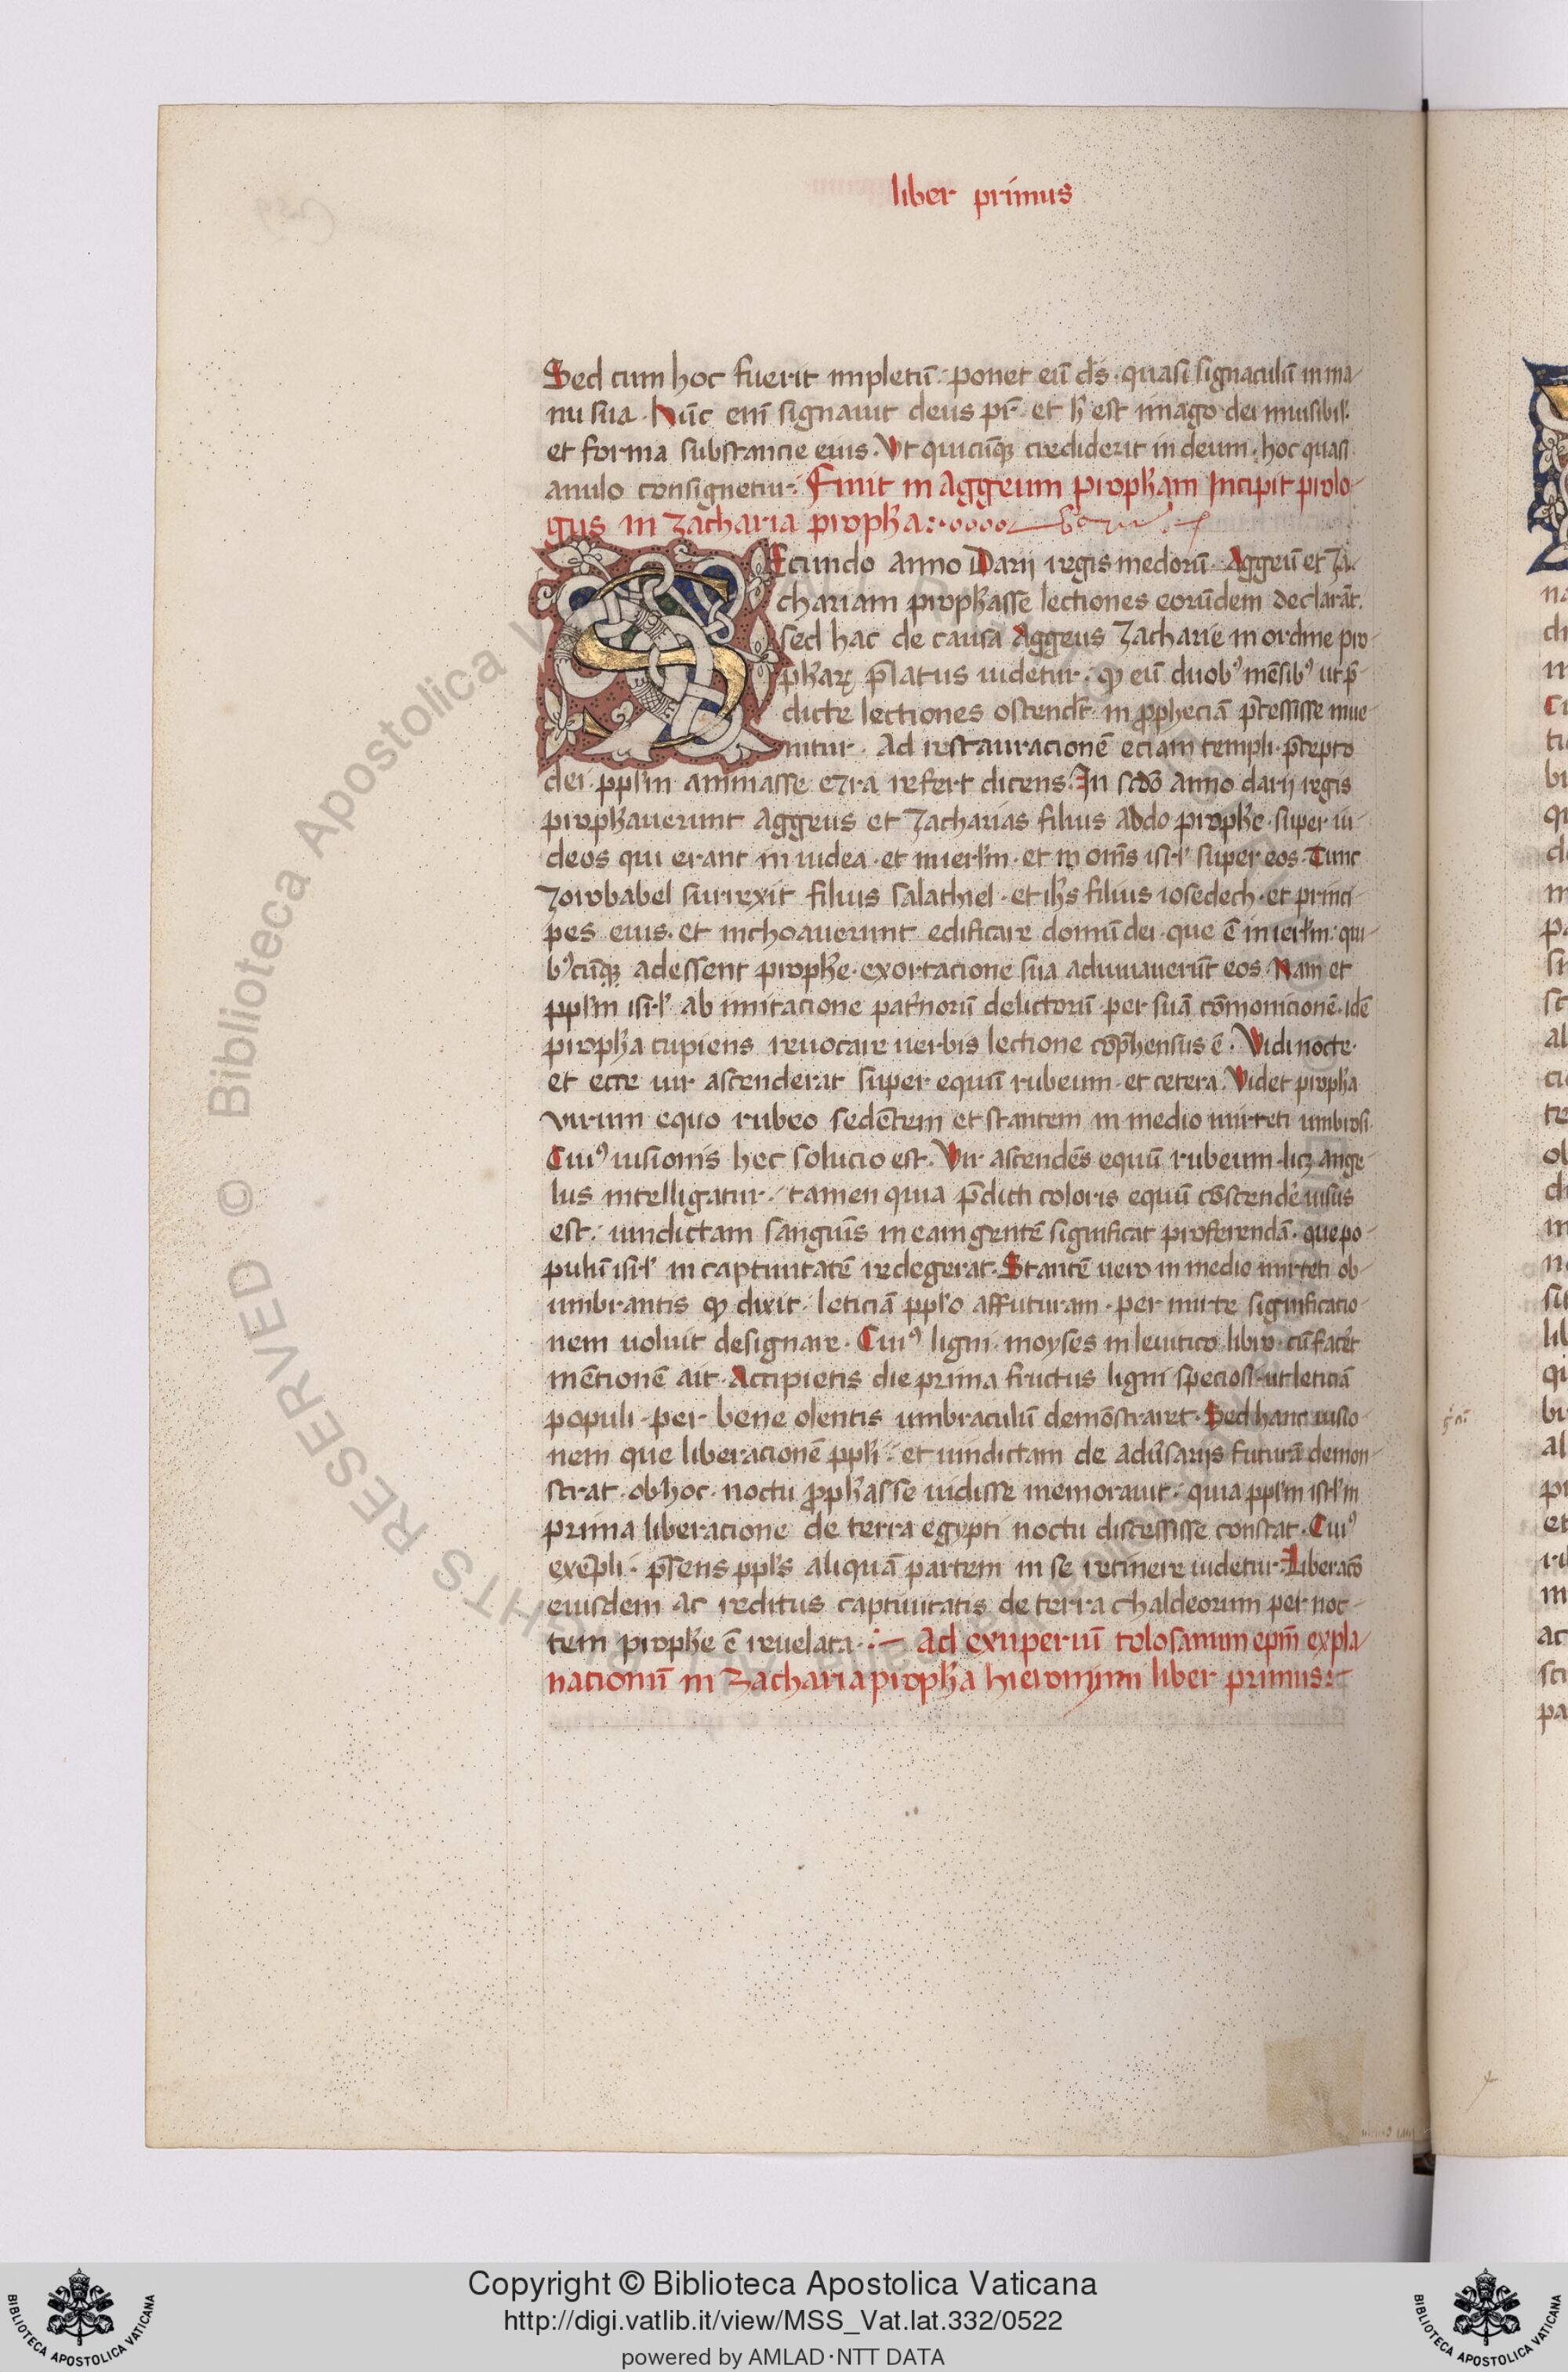 liber primus
Sed cum hoc fuerit impletū. ponet eū dn̄s. quasi signaculū in ma-
nu sua. hūc enī signauit deus pr̄. et h̄ est imago dei inuisibil'.
et forma substancie eius. Vt quicūq; crediderit in deum. hoc quasi
anulo consignetur. Finit in Aggeum prophetam Incipit prolo-
gus in Zacharia propheta:
Secundo anno Darij regis medorū. Aggeū et Za-
chariam prophasse lectiones eorūdem declarāt.
sed hac de causa Aggeus Zacharie in ordine pro-
phaꝝ p̄latus uidetur. qꝫ eū duobꝰ mēsibꝰ ut p̄-
dicte lectiones ostendt. in ꝓpheciā p̄cessisse inue-
nitur. Ad restauracionē eciam templi. p̄cepto
dei. ppl'm animasse ezra refert dicens. In scdo anno darij regis
prophauerunt Aggeus et Zacharias filius addo prophe. super iu-
deos qui erant in iudea. et in ierl'm. et in oīns isr-l' super eos. Tunc
Zorobabel surrexit filius salathiel. et ih̄s filius iosedech. et princi-
pes eius. et inchoauerunt edificare domū dei. que ē in ierl'm. qui-
bꝰcūq; adessent prophe. exortacione sua adiuuauerūt eos. Nam et
ppl'm isr-l' ab imitacione pat'norū delictorū. per suā cōmonicionē. idē
propha cupiens reuocare uerbis lectione cōp̄hensus ē. Vidi nocte.
et ecce uir ascenderat super equū rubeum. et cetera. Videt propha
virum equo rubeo sedētem et stantem in medio mirteti umbrosi.
Cuiꝰ uisionis hec solucio est. Vir ascendēs equū rubeum. licꝫ ange-
lus intelligatur. tamen quia p̄dicti coloris equū cōscende' uisus
est. uindictam sanguīs in eam gentē significat proferendā. que po-
pulū isr-l' in captiuitatē redegerat. Stantē uero in medio mirteti ob-
umbrantis qꝫ dixit. leticiā ppl'o affuturam. per mirte significacio-
nem uoluit designare. Cuiꝰ ligni. moyses in leuitico libro. cū facēt
mētionē ait. Accipietis die prima fructus ligni speciosi. ut leticiā
populi. per bene olentis umbraculū demōstraret. Sed hanc uisio-
nem que liberacionē ppl'i. et uindictam de adu'sarijs futurā demon-
strat. ob hoc. noctu ꝓphasse uidisse memorauit. quia ppl'm isr-l'm
prima liberacione de terra egypti noctu discessisse constat. Cuiꝰ
exēpli. p̄sens ppl's aliquā partem in se retinere uidetur. Liberacō
eiusdem ac reditus captiuitatis de terra chaldeorum per noc-
tem prophe ē reuelata. :~ Ad exuperiū tolosanum ep̄m expla-
nationū in Zacharia propha hieronymi liber primus:
© Biblioteca Apostolica
RIGHTS RESERVED
Copyright © Biblioteca Apostolica Vaticana
http://digi.vatlib.it/view/MSS_Vat.lat.332/0522
powered by AMLAD·NTT DATA
BIBLIOTECA APOSTOLICA VATICANA
BIBLIOTECA APOSTOLICA VATICANA